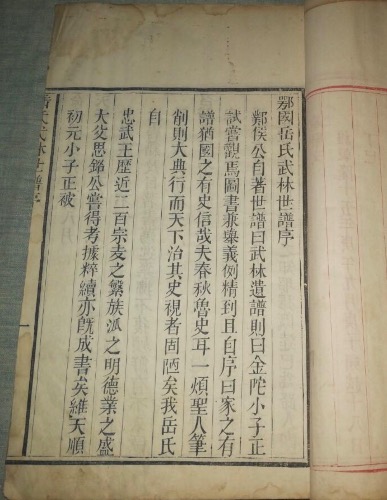 鄂國岳氏武林世譜序
鄴侯公自著世譜曰武林遺譜則曰金陀小子正
試嘗觀馬圖書兼舉義例精到且自序曰家之有
譜猶國之有史信哉夫春秋魯史耳一煩聖人筆
削則大典行而天下治其史視者固陋矣我岳氏
自
忠武王歷近二百宗支之繁族派之明德業之盛
大父思鑑公嘗得考據粹續亦旣成書矣維天順
初元小子正被